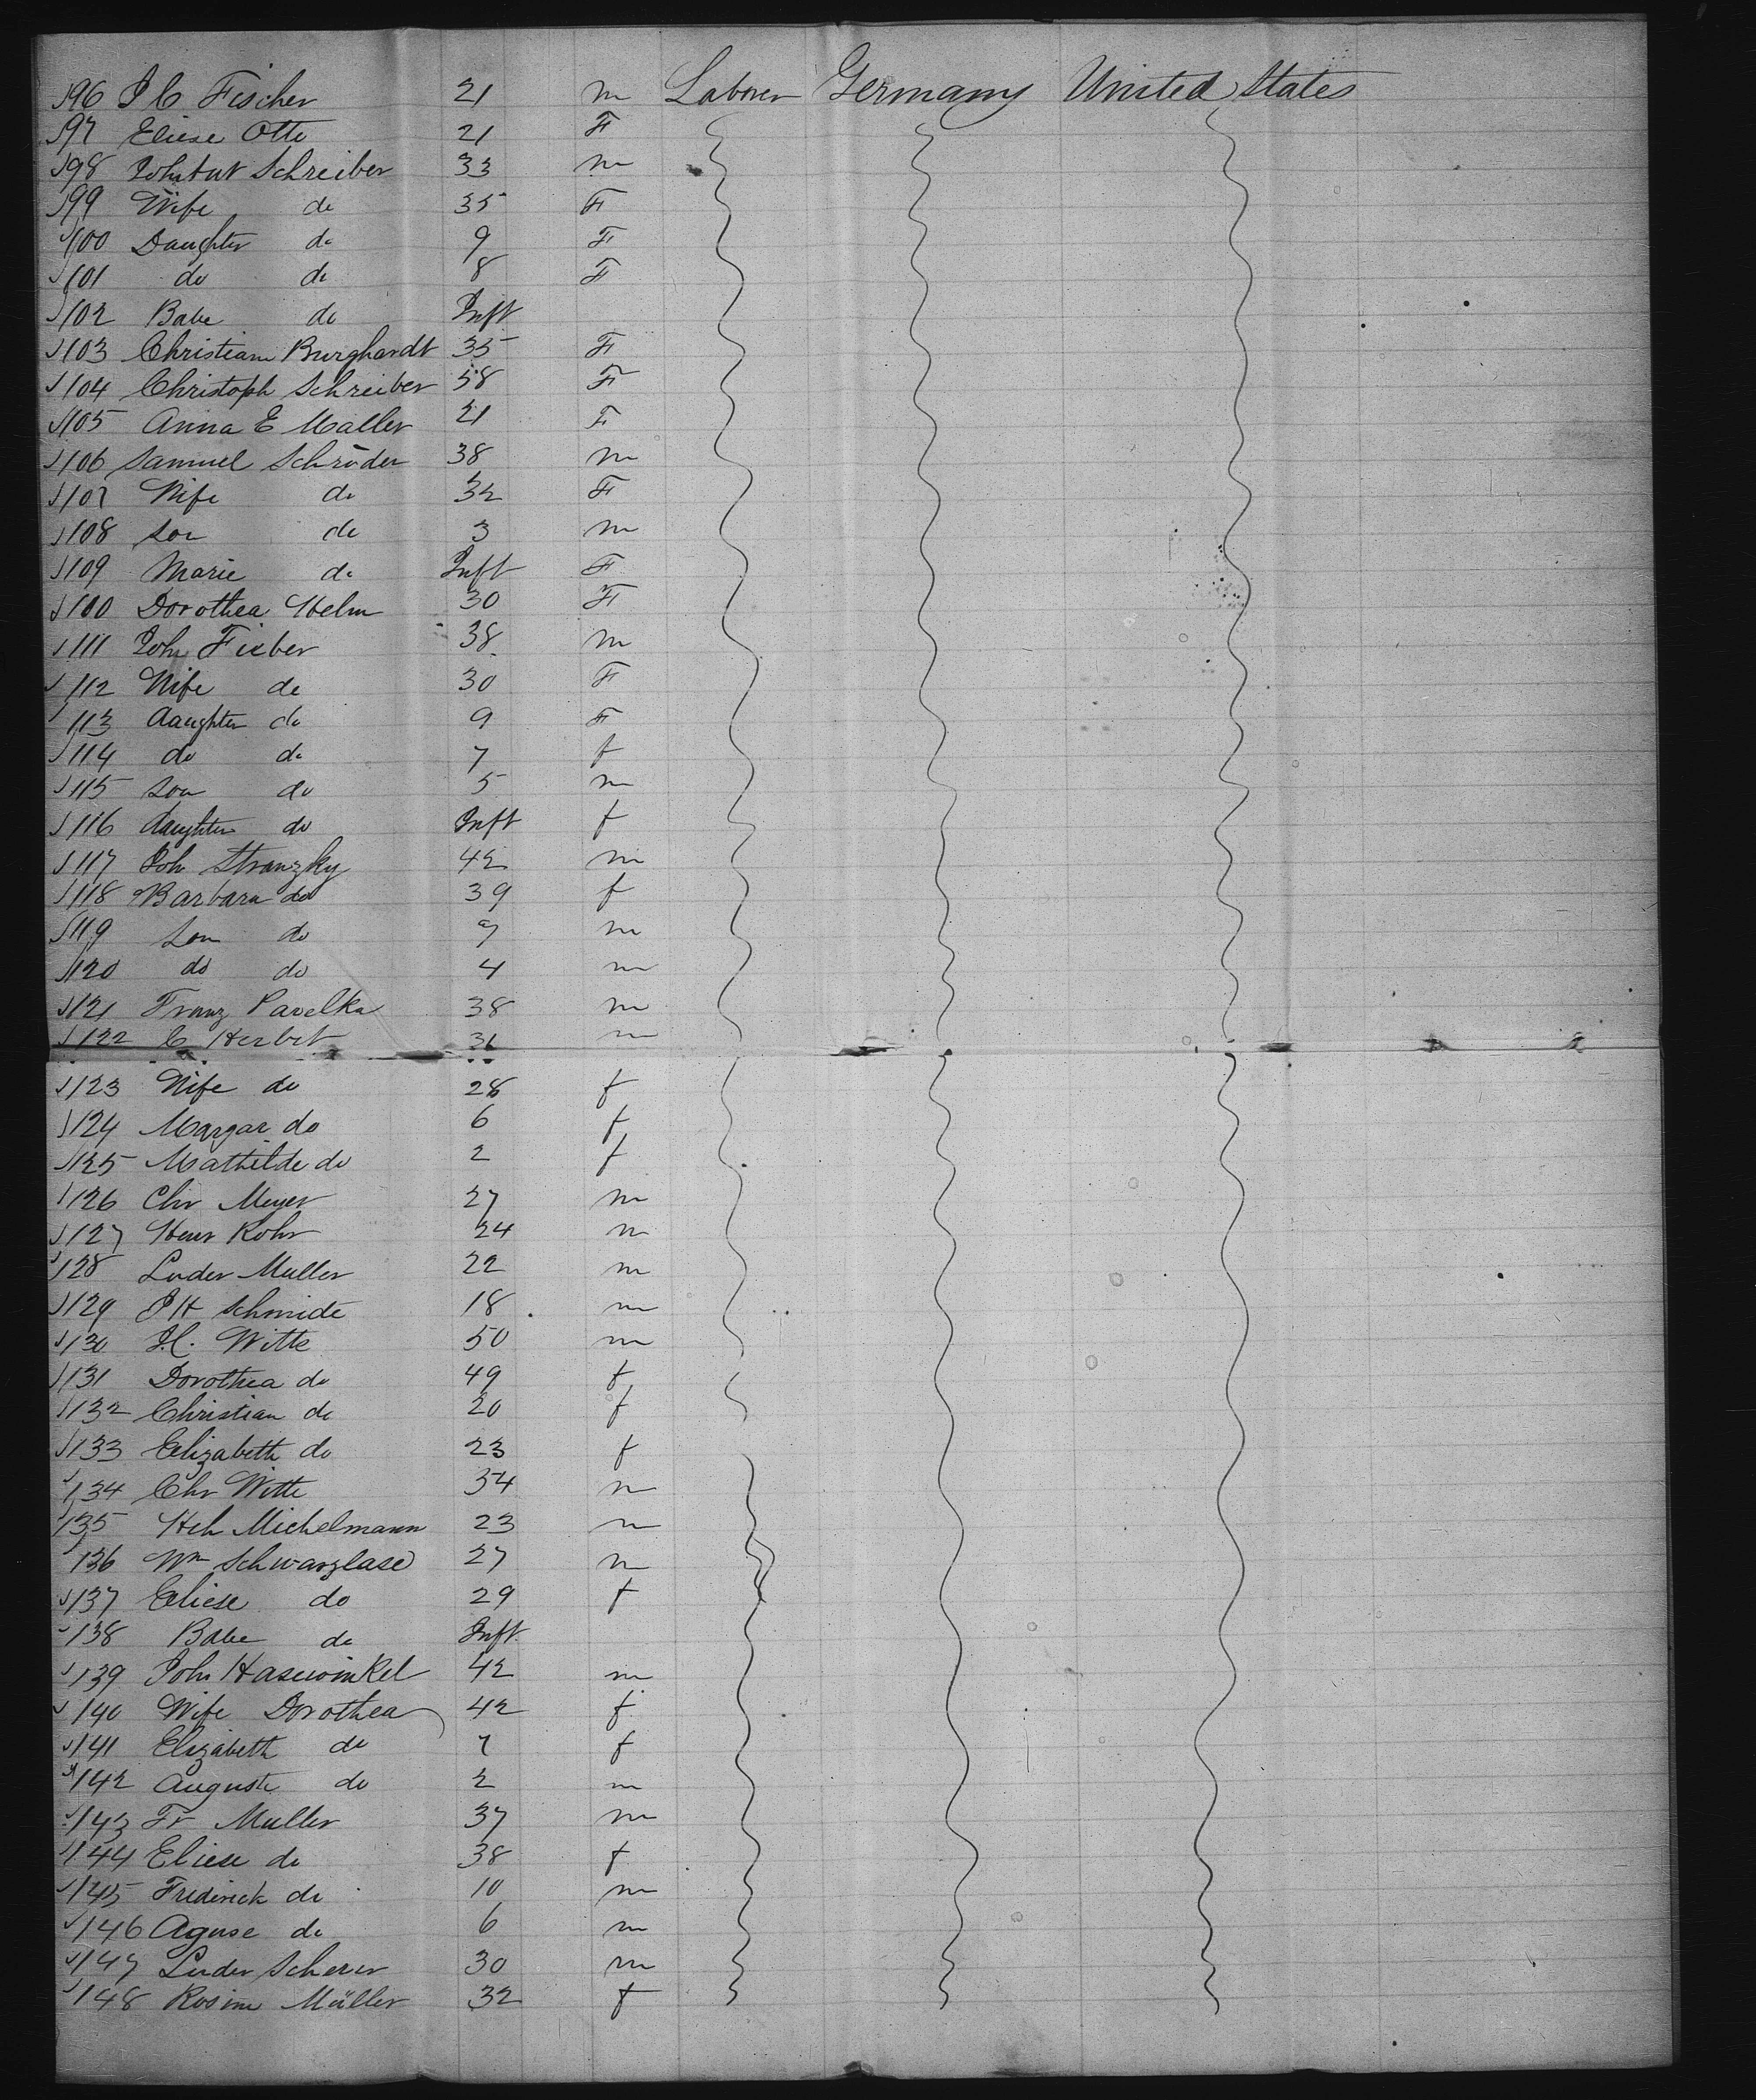 96 J C Fischer 21 m Laborer Germany United States
97 Eliese Otte 21 F
98 Schreiber 33 m
99 Wife do 35 F
100 Daughter do 9 F
101 do do 8 F
102 Babe do Inft
103 Christiane Burghardt 35 F
104 Christoph Schreiber 58 F
105 Anna E Maller 21 F
106 Samuel Schröder 38 m
107 Wife do 32 F
108 Son do 3 m
109 Marie do Inft F
100 Dorothea Helm 30 F
111 Joh Fieber 38 m
112 Wife do 30 F
113 daughter do 9 F
114 do do 7 f
115 son do 5 m
116 daughter do Inft f
117 Joh Stranzky 42 m
118 Barbara do 39 f
119 Son do 9 m
120 do do 4 m
121 Franz Pavelka 38 m
122 C Herbst 31 m
123 Wife do 28 f
124 Margar do 6 f
125 Mathilde do 2 f
126 Chr Meyer 27 m
127 Henr Kohr 24 m
128 Luder Muller 22 m
129 J H Schmidt 18 m
130 J.C. Witte 50 m
131 Dorothea do 49 f
132 Christian do 20 f
133 Elizabeth do 23 f
134 Chr Witte 34 m
135 Hch Michelmann 23 m
136 Wm Schwarzlase 27 m
137 Eliese do 29 f
138 Babe do Inft
139 Joh Hasewinkel 42 m
140 Wife Dorothea 42 f
141 Elizabeth do 7 f
142 Auguste do 2 m
143 Fr Muller 37 m
144 Eliese do 38 f
145 Frederick do 10 m
146 Aguse do 6 m
147 Luder Scherer 30 m
148 Rosine Müller 32 f